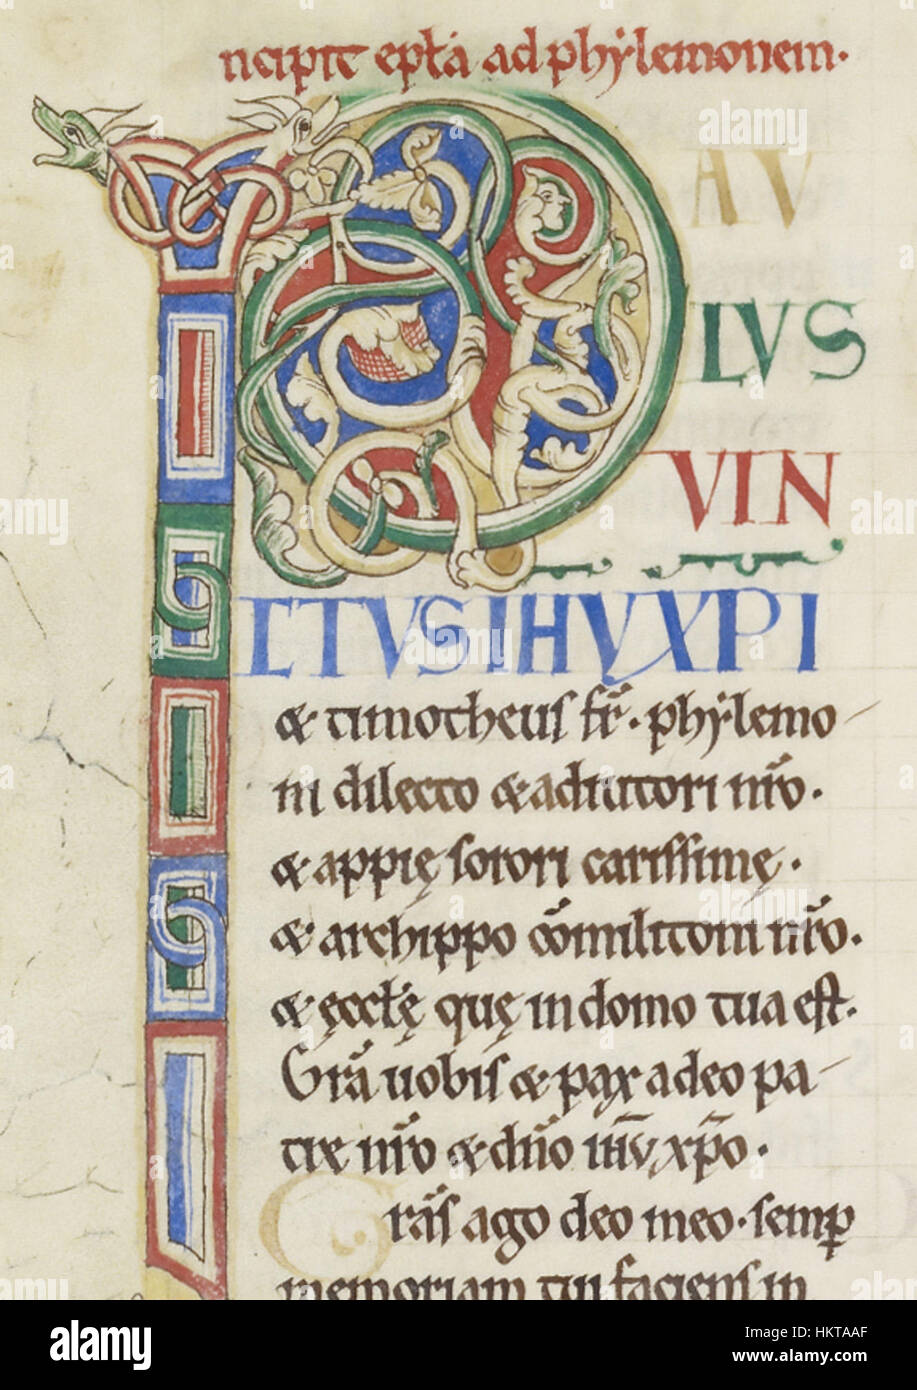 ncipit epła ad phylemonem.
P AV
LVS
VIN
CTVS IHV XPI
& timotheus fr̃. phylemo
ni dilecto & adiutori nr̃o.
& appię sorori carissimę.
& archippo cõmilitoni nr̃o.
& ęcclę quę in domo tua est.
Gr̃a uobis & pax a deo pa-
tre nr̃o & dñо ih̅u xp̃o.
Grãs ago deo meo. semp̲
memoriam tui faciens in
alamy
Image ID: HKTAAF
www.alamy.com